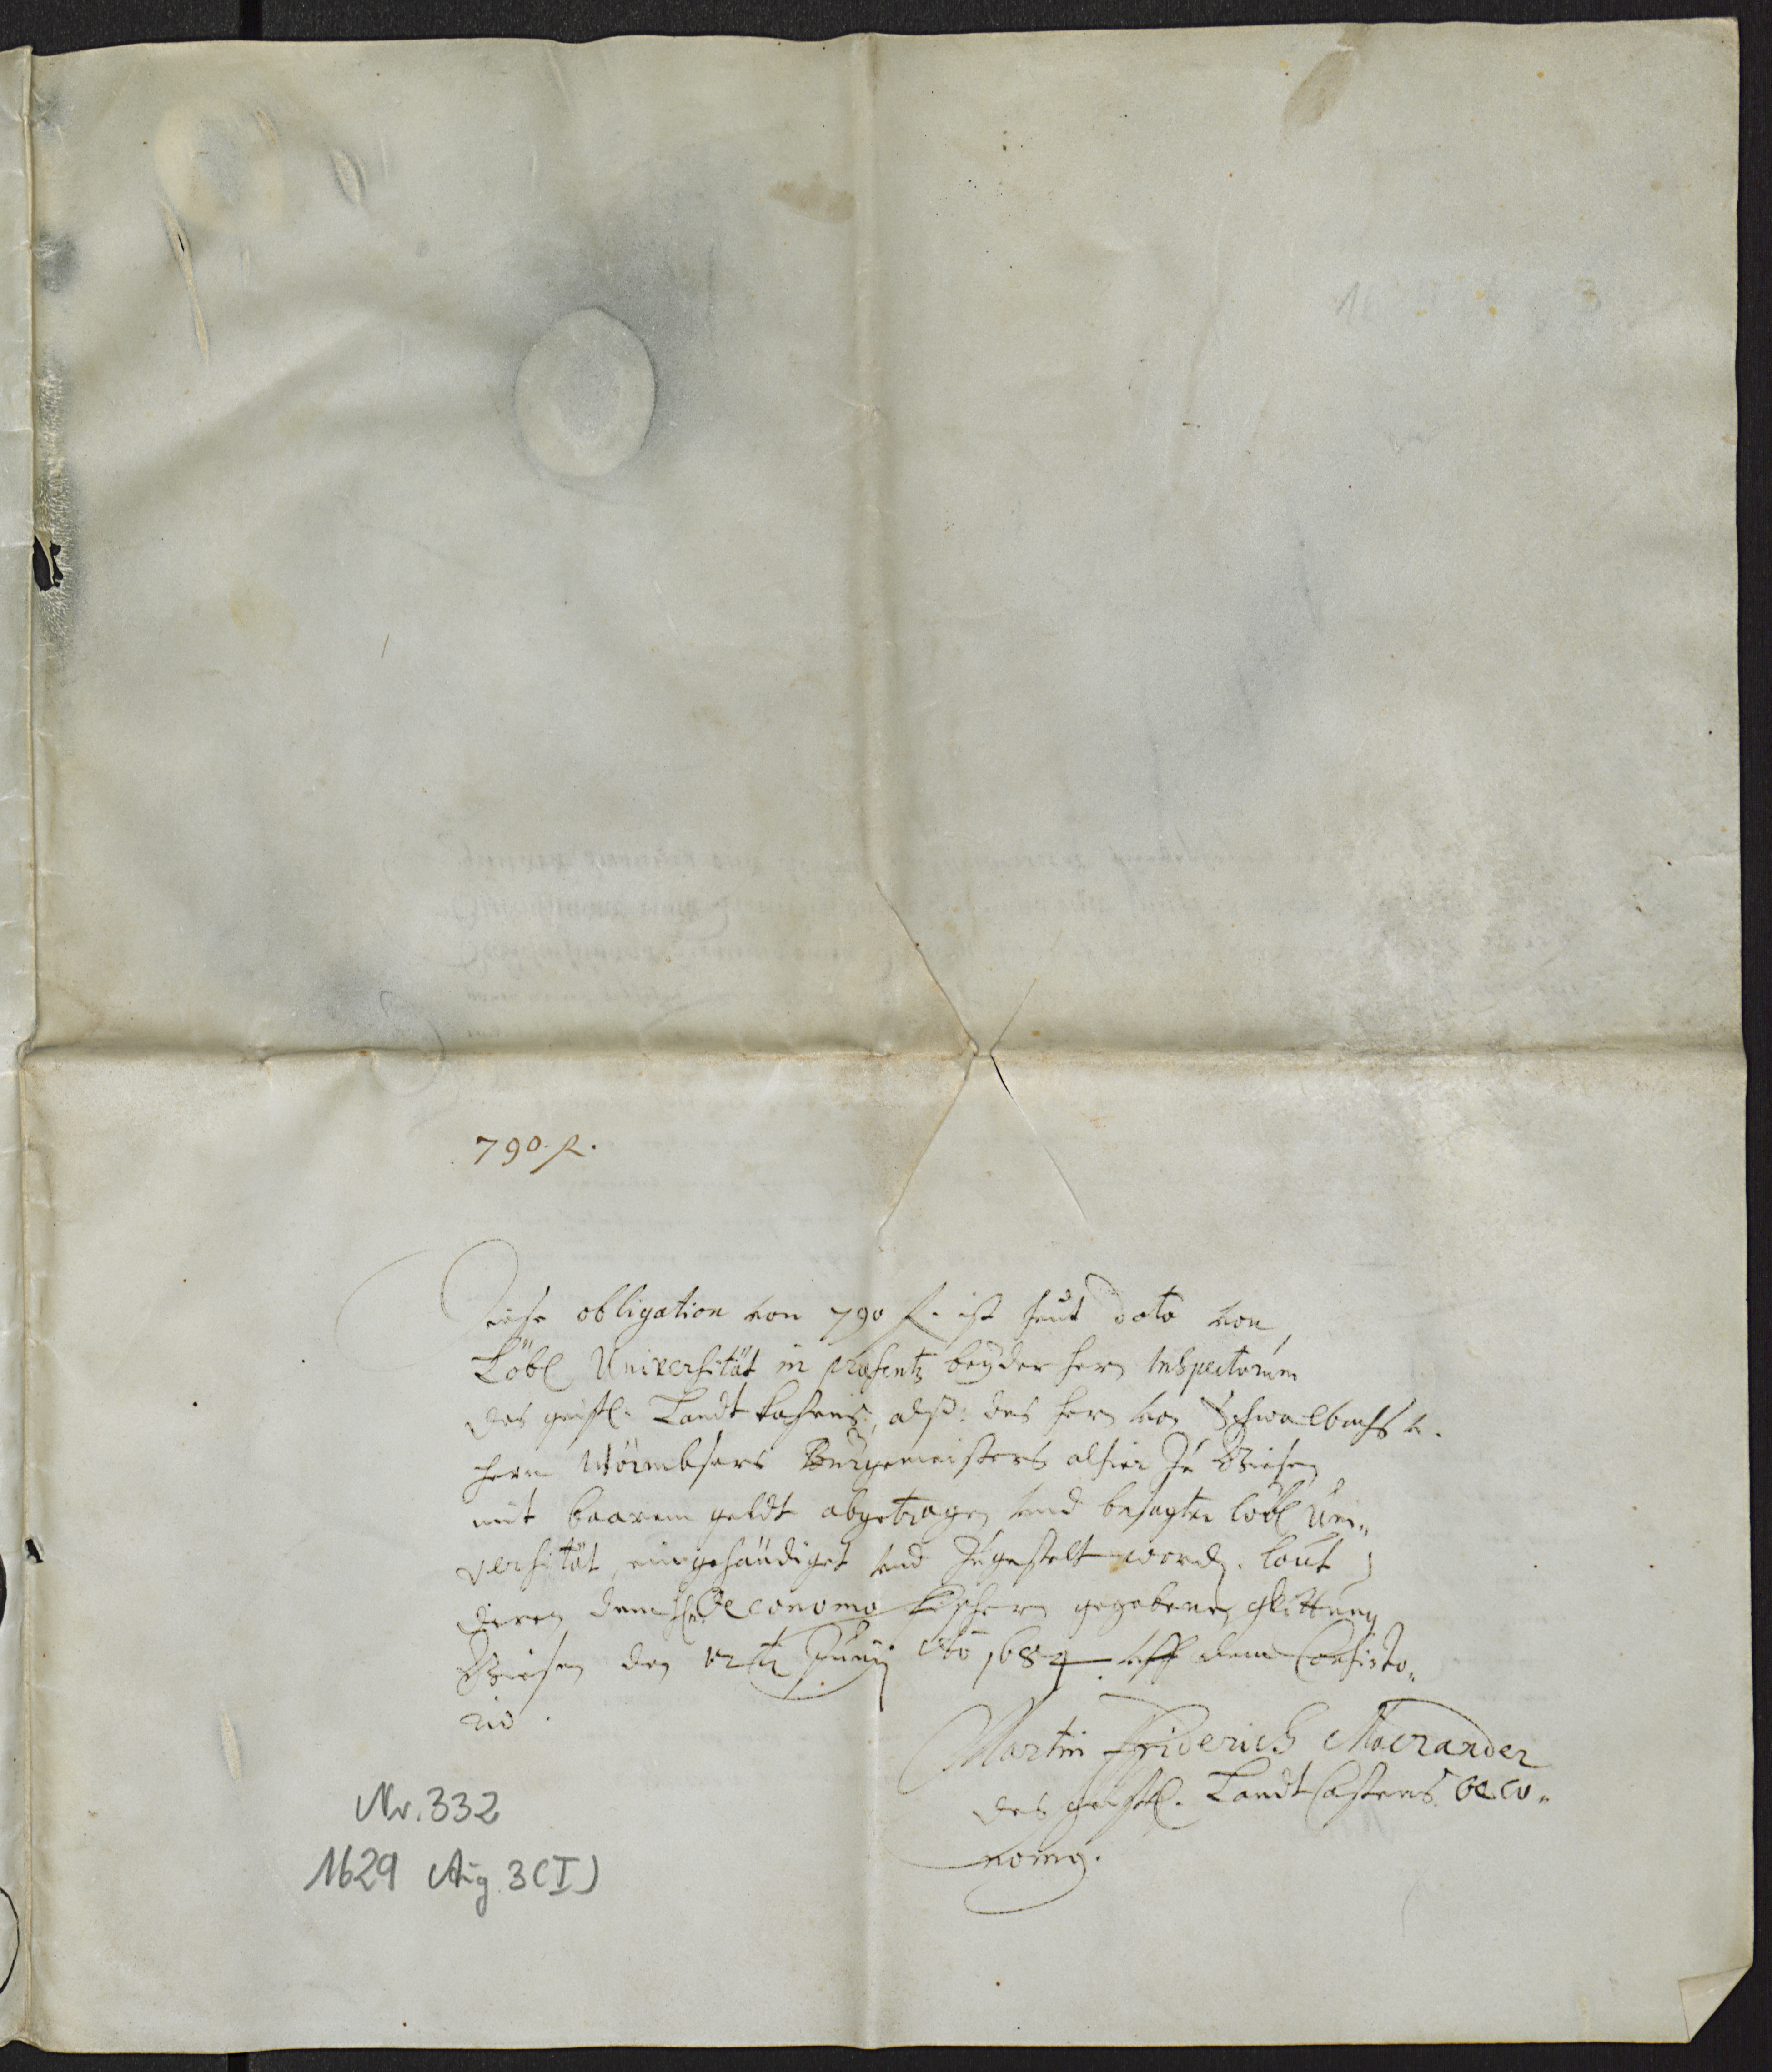 790. fl.
Diese obligation von 790 fl. ist heut dato von
Löbl. Universität in præsentz beyder herrn Inspectorum
des geistl. Landt Kastens, alß: des herrn von Schwalbachs u.
herrn Wörmbsers Burgemeisters alhier zu Giesen
mit baarem geldt abgetragen und besagter löbl. Uni„
versität eingehändiget und zugestelt word. laut
deren dem H. Oeconomo gegebenen Quittung
Giesen den 12t. Junij Ao 1684. uff dem Consisto„
rio.
Martin Friderich Macrander
des geistl. Landt Castens Oeco„
nomg.
Nr. 332
1629 Aug. 3 (I)